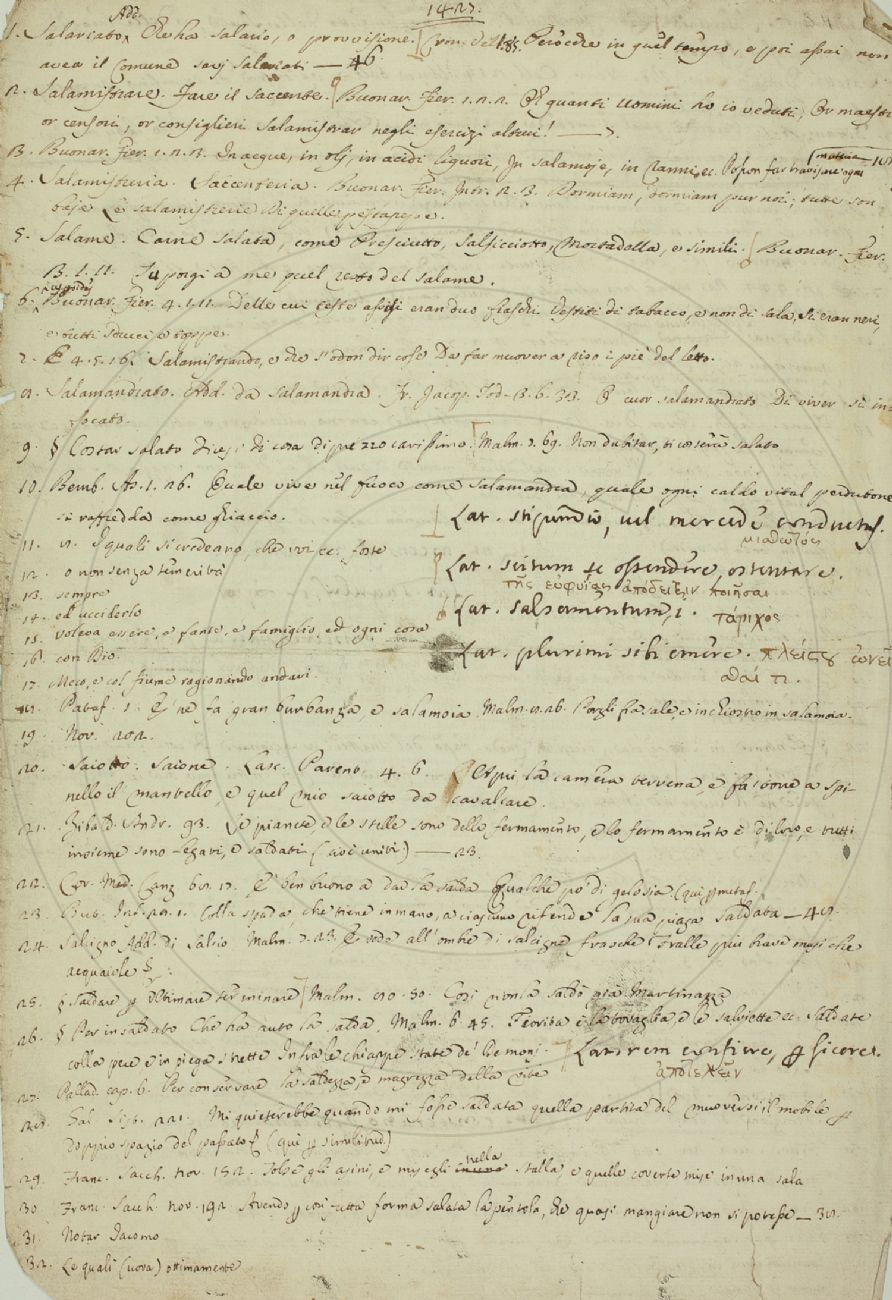 1427.
Add.
1. Salariato, Che ha salario, o provvisione. Perocchè in quel tempo, e poi assai non
avea il Comune savj salariati — 46
2. Salamistrare. Fare il saccente. Buonar. Fier. 1. 2. 2. E quanti uomini ho io veduti, Or maestri
or censori, or consiglieri salamistrar negli esercizi altrui! — 7.
3. Buonar. Fier. in acque, in olj, in acidi liquori, In salamoje, in ranni, ec. Posson far travisare ogni
4. Salamistreria. Saccenteria. Buonar. Fier. Intr. 2. 3. Dormiam, dormiam pur noi; tutte son
baje Le salamistrerie di quelle
5. Salame. Carne salata, come Presciutto, Salsicciotto, Mortadella, e simili. Buonar. Fier.
3. 1. 11. Tu porgi a me quel resto del salame.
6. Buonar. Fier. 4. 1. 11. Delle cui teste assisi eran duo fiaschi Vestiti di tabacco, e non di sala, Sì eran neri,
e tutti
7. E 4. 5. 16. Salamistrando, e che s'odon dir cose Da far muover a riso i piè del letto.
8. Salamandrato. Add. da Salamandra. Fr. Jacop. Tod. 3. 6. 32. O cuor salamandrato Di viver sì in-
focato.
9. § Costar salato dicesi di cosa di prezzo carissimo. Malm. 7. 69. Non dubitar, ti costerà salato
10. Bemb. As. 1. 26. Quale vive nel fuoco come salamandra, quale ogni caldo vital perdutone
si raffredda come ghiaccio.
Lat. stipendio, vel mercede conductus.
μισθωτός
11. I quali si credeano, che ivi ec. fosse
12. o non senza temerità
Lat. scitum se ostendere, ostentare.
τῆς εὐφυΐας ἀπόδειξιν ποιῆσαι
13. sempre
14. ed ucciderlo
Lat. salsamentum, i. τάριχος
15. voleva essere, e fante, e famiglio, ed ogni cosa
16. con Dio
Lat. plurimi sibi emere. πλείστου ὠνεῖ
σθαί τι.
17. Meco, e col fiume ragionando andavi.
18. Pataf. 1. E ne fa gran burbanza e salamoia. Malm. in salamoia.
19. Nov. 202.
20. Saiotto. Saione. Lasc. Parent. 4. 6. Qui la camera terrena, e fa porre a spi-
nello il mantello, e quel mio saiotto da cavalcare.
21. Zibald. Andr. 93. Le pianete, e le stelle sono dello fermamento, e lo fermamento è di loro, e tutti
insieme sono legati, e saldati (cioè uniti) — 23.
22. Car. Med. Canz. 62. 7. E' ben buono a dar la salda Qualche po' di gelosia (qui p metaf.
23. Colla spada, che tiene in mano, a ciascuno rifende la sua piaga saldata — 48.
24. Saligno Add. di Salcio Malm. all'ombre di salcigne frasche Tralle più brave musiche
acquaiole
25. § Saldare p Ultimare terminare Malm. 10. 50. Così non la saldò già Martinazza
26. § Per insaldato Che ha auto la salda. Malm. 6. 45. Fiorita è la tovaglia, e le salviette ec. Saldate
colla pece e in piega strette Infra le chiappe state de' Demonj. Lat. rem conficere, perficere.
ἀποτελεῖν
27. Pallad. cap. 6. Per conservare la saldezza, e magrezza della vite
28. Gal. Sist. 221. Mi quieterebbe quando mi fosse saldata quella partita del muoversi il mobile p
doppio spazio del passato (qui p similitud.)
29. Franc. Sacch. nov. 152. Tolse gli asini, e misegli nella stalla, e quelle coverte mise in una sala
30. Franc. Sacch. nov. 192. Avendo p con tutta forma salata la pentola, che quasi mangiare non si potesse — 38.
31. Notar Iacomo
32. Le quali (uova) ottimamente